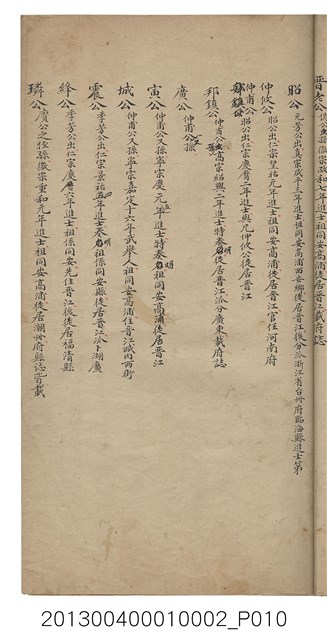 昭公 元芳公出真宗咸平三年進士祖同安高浦西安鄉徙居晉江後分浙江省台州府臨海縣進士第
仲攸公 昭公出仁宗皇祐元年進士祖同安高浦徙居晉江官任河南府
仲甫公 昭公出仁宗慶曆二年進士與兄仲攸公徙居晉江
邦鎮公 仲甫公 高宗紹興二年進士特奏名徙居晉江派分廣東載府誌
廣公 仲甫公孫
寅公 仲甫公又孫寧宗慶元元年進士特奏名祖同安高浦徙居晉江
城公 仲甫公又孫寧宗嘉定十六年武舉人祖同安高浦住晉江城内西街
震公 李芳公出仁宗景祐五年進士奏名祖係同安縣徙居晉江派卜湖廣
絳公 李芳公出仁宗慶曆六年進士祖係同安先住晉江後徙居福清縣
璘公 廣公之侄孫徽宗重和元年進士祖同安高浦徙居潮州府縣誌皆載
201300400010002_P010